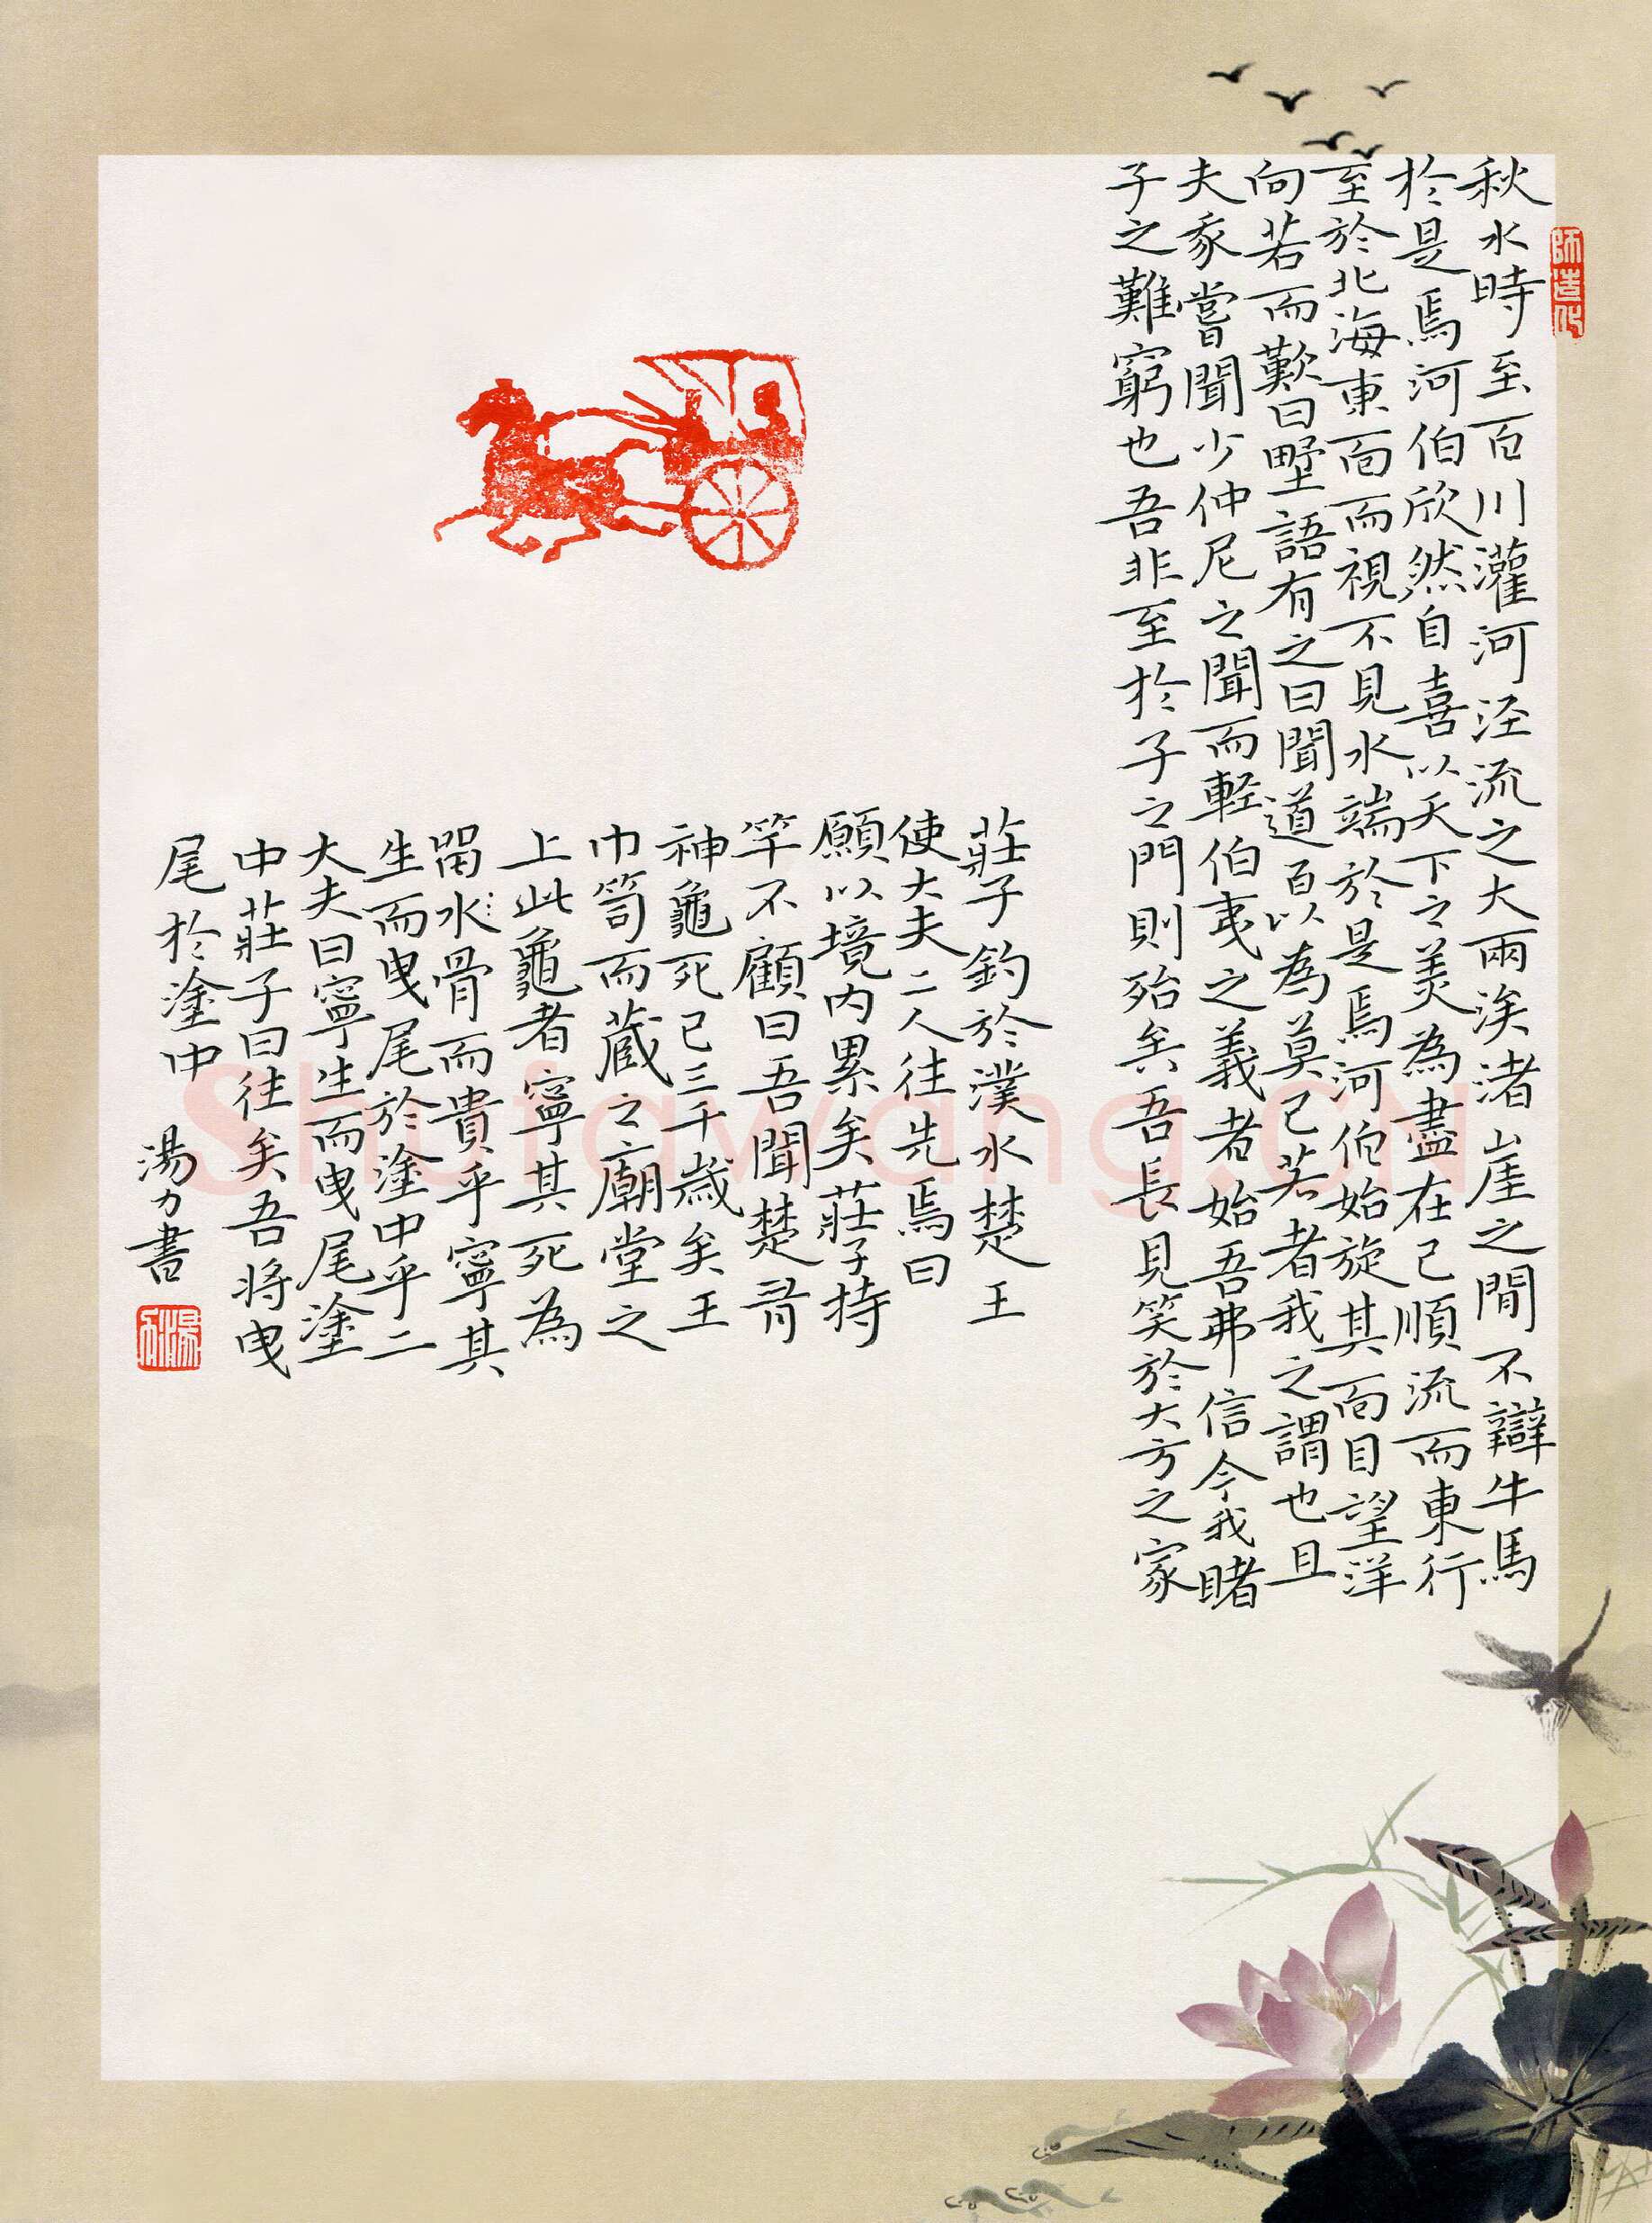 師造化
秋水時至百川灌河泾流之大兩涘渚崖之間不辯牛馬
於是焉河伯欣然自喜以天下之美為盡在己順流而東行
至於北海東面而視不見水端於是焉河伯始旋其面目望洋
向若而歎曰墅語有之曰聞道百以為莫己若者我之謂也且
夫我嘗聞少仲尼之聞而軽伯夷之義者始吾弗信今我睹
子之難窮也吾非至於子之門則殆矣吾長見笑於大方之家
莊子釣於濮水楚王
使大夫二人往先焉曰
願以境内累矣莊子持
竿不顧曰吾聞楚有
神龜死已三千歲矣王
巾笥而蔵之廟堂之
上此龜者寧其死為
留水骨而貴乎寧其
生而曳尾於塗中乎二
大夫曰寧生而曳尾塗
中莊子曰往矣吾将曳
尾於塗中
湯力書
Shufawang.CN